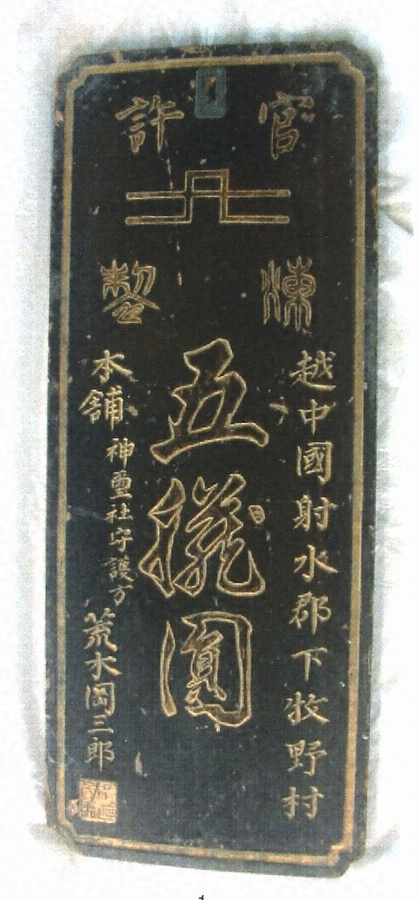 官許
煉製
越中國射水郡下牧野村
五臓圓
本舖 神璽社守護方 荒木岡三郎
1